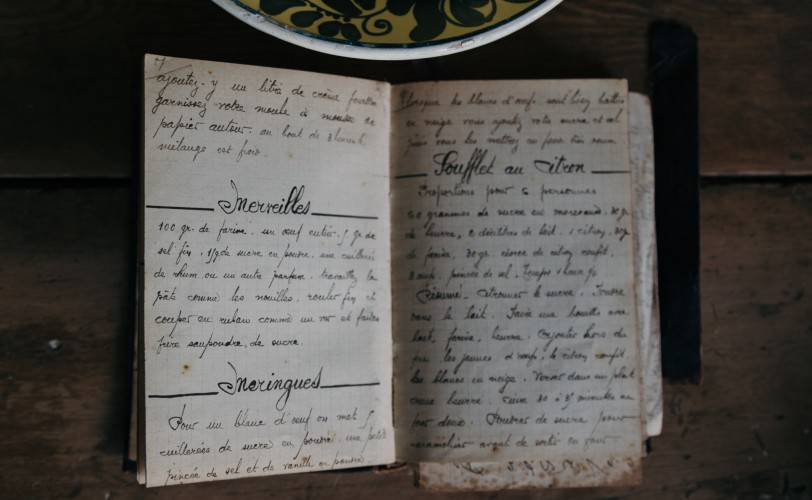 ajoutez-y un litre de crème fouettée
garnissez votre moule à mousse de
papier autour, au bout de 3 heures le
mélange est froid.
Merveilles
100 gr. de farine, un œuf entier, 5 gr de
sel fin, de sucre en poudre, une cuillerée
de rhum ou un autre parfum, travaillez la
pâte comme les nouilles, rouler fin et
couper en ruban comme un et faites
frire saupoudrez de sucre.
Meringues
Pour un blanc d'œuf on met 5
cuillerées de sucre en poudre, une petite
pincée de sel et de vanille en poudre
Lorsque les blancs d'œufs sont bien battus
en neige vous ajoutez votre sucre et sel
puis vous les mettez au four
Soufflet au Citron
Proportions pour 6 personnes
60 grammes de sucre en morceaux, 30 gr
de beurre, 2 décilitres de lait, 1 citron, 30 gr
de farine, 30 gr. écorce de citron confit,
3 œufs, pincée de sel. Temps 1 heure
Résumé. Citronner le sucre. Fondre
dans le lait. Faire une bouillie avec
lait, farine, beurre. Ajouter hors du
feu les jaunes d'œufs, le citron confit,
les blancs en neige. Verser dans un plat
creux beurré. Cuire 30 à 35 minutes au
four doux. Poudrer de sucre pour
caraméliser avant de sortir du four